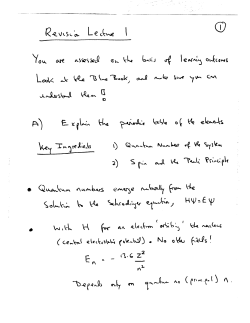 ①
Revision Lecture 1
You are assessed on the basis of learning outcomes
Look at the Blue Book, and make sure you can
understand them!!
A) Explain the periodic table of the elements
Key Ingredients 1) Quantum Numbers of the System
2) Spin and the Pauli Principle
• Quantum numbers emerge naturally from the
Solution to the Schrodinger equation, HΨ=EΨ
• With H for an electron 'orbiting' the nucleus
(central electrostatic potential). No other fields!
En = - 13.6 Z²/n²
Depends only on quantum no (principal) n.